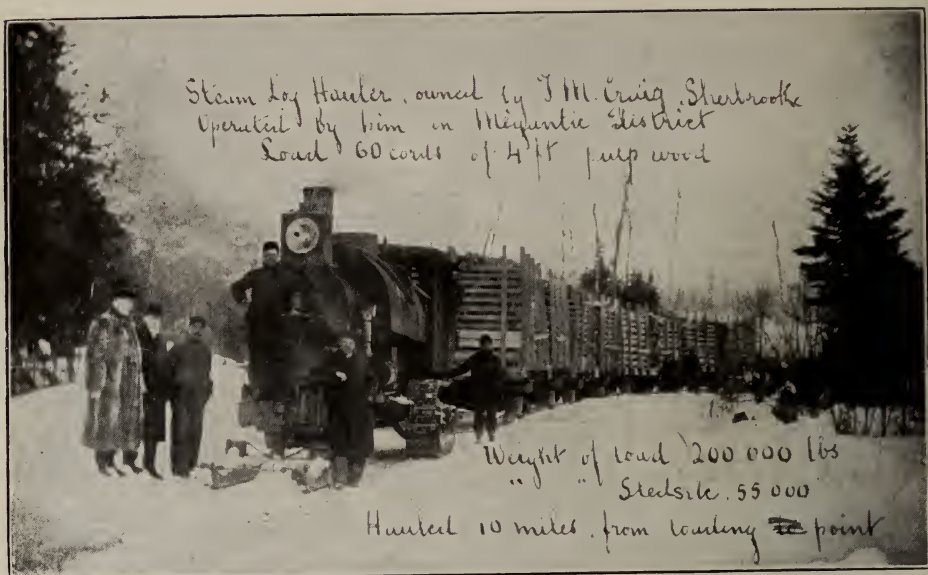 Steam Log Hauler, owned by T M. Craig, Sherbrooke
Operated by him in Megantic District
Load 60 cords of 4 ft pulp wood
Weight of load 200 000 lbs
" " Sleds etc. 55 000
Hauled 10 miles, from loading point